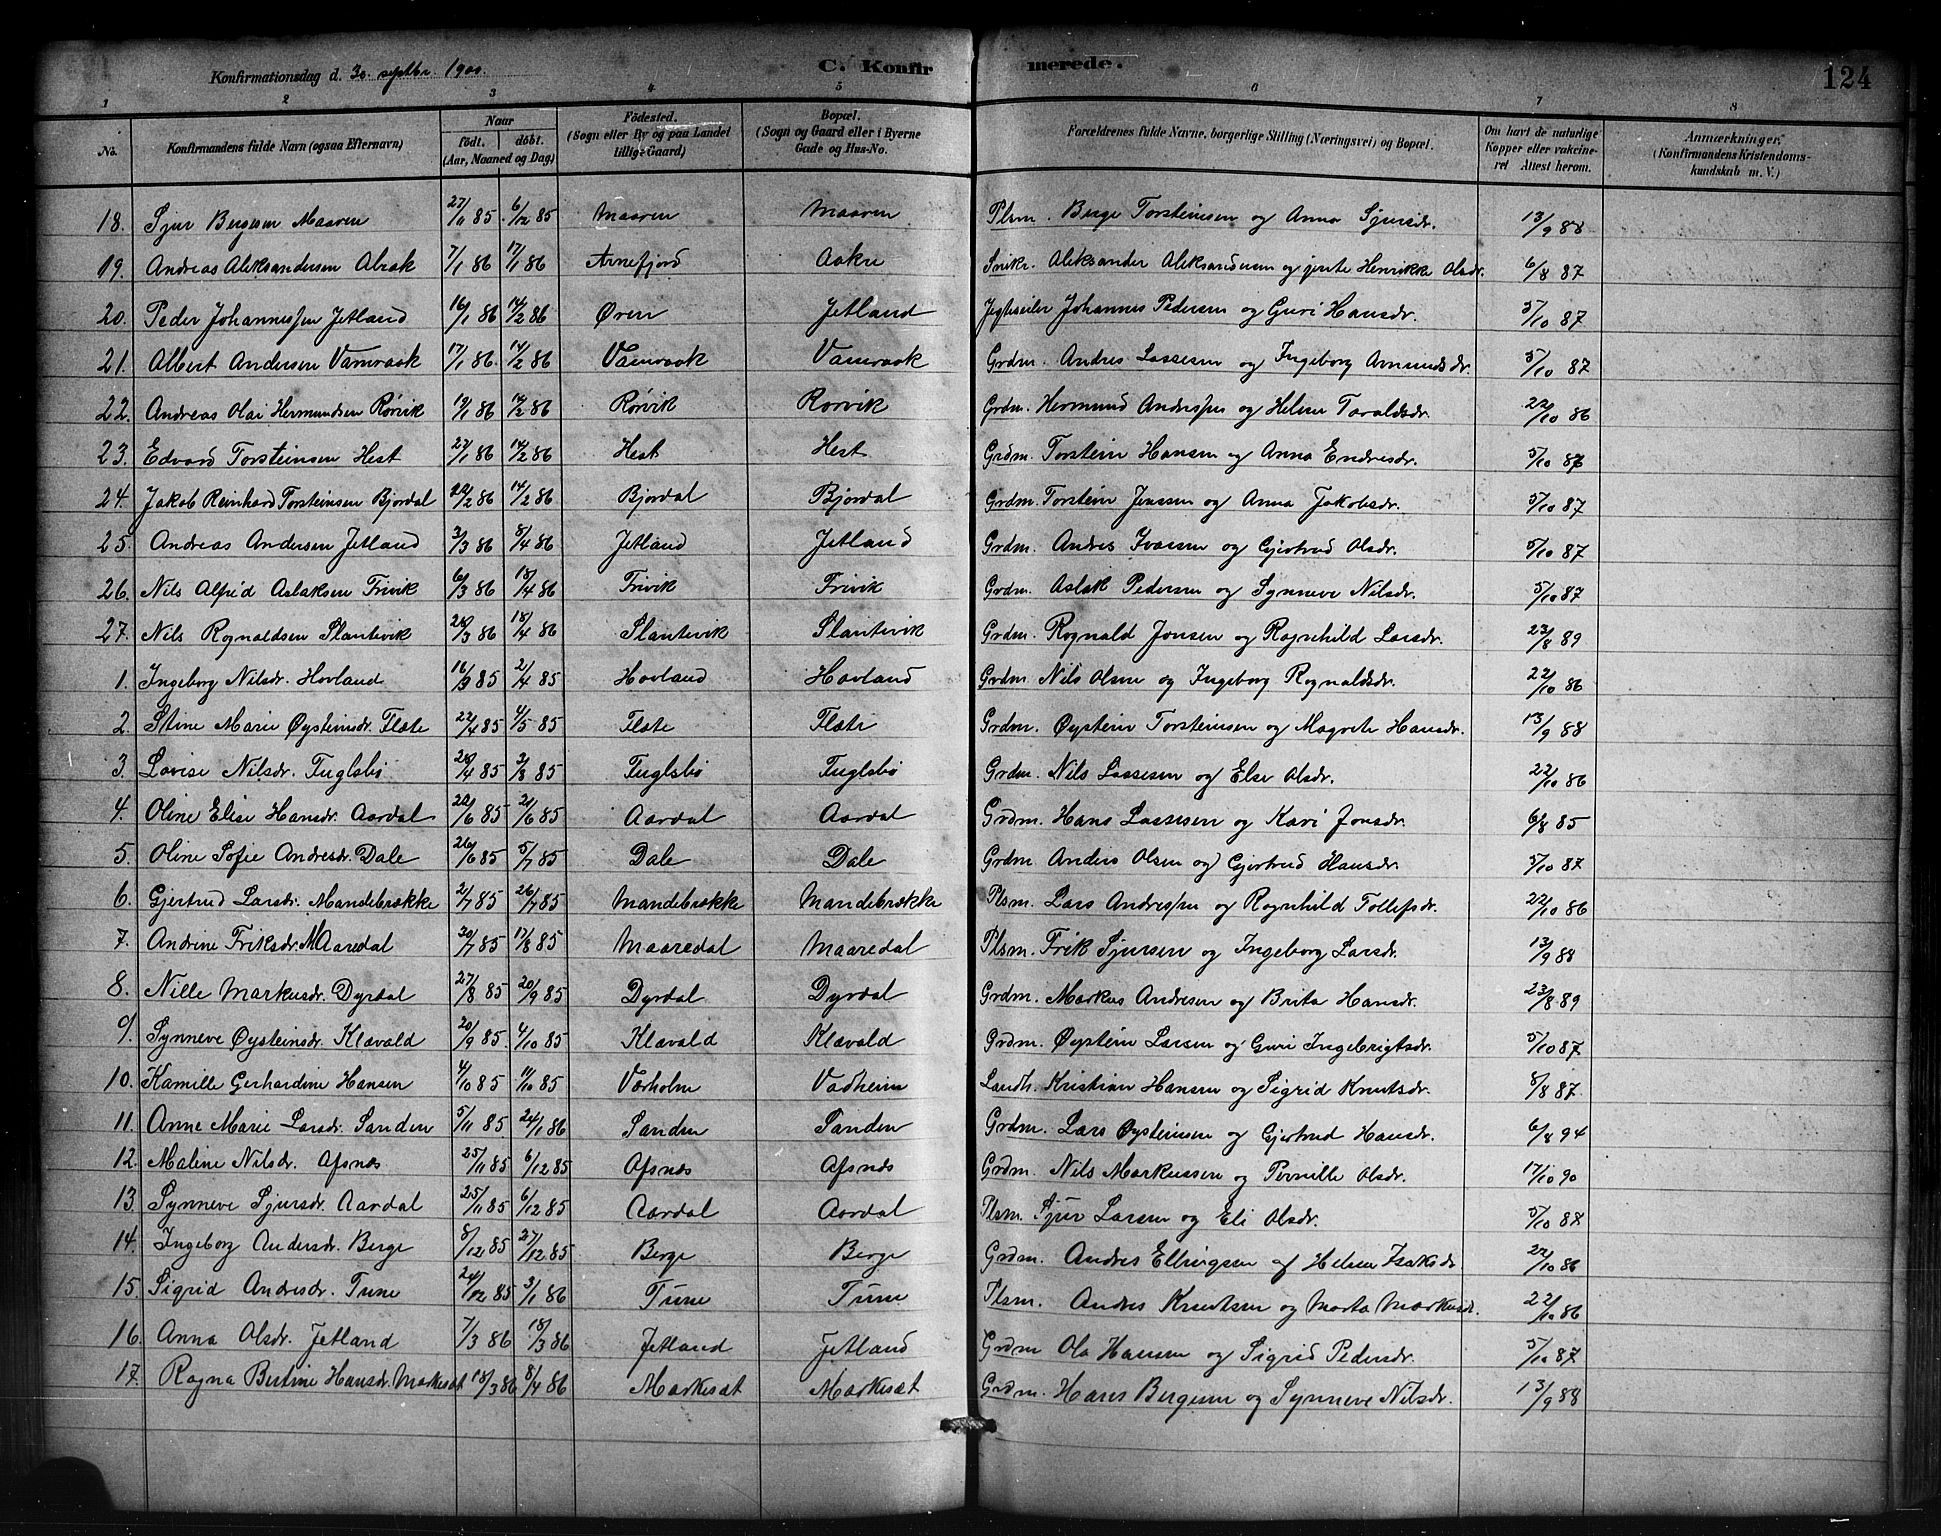 Konfirmationsdag d. 30. septbr. 1900. C. Konfirmerede. 124
1 2 3 4 5 6 7 8
No. Konfirmandens fulde Navn (ogsaa Efternavn) Naar født. døbt. (Aar, Maaned og Dag) Fødested. (Sogn eller By og paa Landet tillige Gaard) Bopæl. (Sogn og Gaard eller i Byerne Gade og Hus-No. Forældrenes fulde Navne, borgerlige Stilling (Næringsvei) og Bopæl. Om havt de naturlige Kopper eller vakcineret Attest herom. Anmærkninger. (Konfirmandens Kristendomskundskab m. V.)
18. Sjur Bergesen Maaren 27/11 85 6/12 85 Maaren Maaren Plsm. Berge Torsteinsen og Anna Sjursdr. 13/9 88
19. Andreas Aleksandersen Abrak 7/1 86 17/1 86 Arnefjord Aakre Aleksander Aleksandersen og jente Henrikke Olsdr. 6/8 87
20. Peder Johannessen Jetland 16/1 86 14/2 86 Øren Jetland Jegteseiler Johannes Pedersen og Guri Hansdr. 5/10 87
21. Albert Andersen Vamraak 17/1 86. 14/2 86 Vamraak Vamraak Grdm. Andres Lassesen og Ingeborg Amundsdr. 5/10 87
22. Andreas Olai Hermundsen Rørvik 19/1 86 14/2 86 Rørvik Rørvik Grdm. Hermund Andressen og Helene Taraldsdr. 22/10 86
23. Edvard Torsteinsen Hest 27/1 86 14/2 86 Hest Hest Grdm. Torstein Hansen og Anna Endresdr. 5/10 87
24. Jakob Reinhard Torsteinsen Bjordal 14/2 86 Bjordal Bjordal Grdm. Torstein Jenssen og Anna Jakobsdr. 5/10 87
25. Andreas Andersen Jetland 3/3 86 8/4 86 Jetland Jetland Grdm. Andres Ivarsen og Gjertrud Olsdr. 5/10 87
26. Nils Alfrid Aslaksen Frivik 6/3 86 18/4 86 Frivik Frivik Grdm. Aslak Pedersen og Synneve Nilsdr. 5/10 87
27. Nils Rognaldsen Slantevik 28/3 86 18/4 86 Slantevik Slantevik Grdm. Rognald Jonsen og Rognhild Larsdr. 23/8 89
1. Ingeborg Nilsdr. Hovland 16/3 85 2/4 85 Hovland Hovland Grdm. Nils Olsen og Ingeborg Rognaldsdr. 22/10 86
2. Stine Marie Øysteinsdr. Flæte 22/4 85 4/5 85 Flæte Flæte Grdm. Øystein Torsteinsen og Magrete Hansdr. 13/9 88
3. Lovise Nilsdr. Fuglsbø 28/4 85 3/8 85 Fuglsbø Fuglsbø Grdm. Nils Lassesen og Else Olsdr. 22/10 86
4. Oline Elise Hansdr. Aardal 21/6 85 Aardal Aardal Grdm. Hans Lassesen og Kari Jonsdr. 6/8 85
5. Oline Sofie Andresdr. Dale 26/6 85 5/7 85 Dale Dale Grdm. Anders Olsen og Gjertrud Hansdr. 5/10 87
6. Gjertrud Larsdr. Mandebrække 2/7 85 26/7 85 Mandebrække Mandebrække Plsm. Lars Andressen og Rognhild Tollefsdr. 22/10 86
7. Andrine Friksdr. Maaredal 20/7 85 17/8 85 Maaredal Maaredal Plsm. Frik Sjursen og Ingeborg Larsdr. 13/9 88
8. Nille Markusdr. Dyrdal 27/8 85 20/9 85 Dyrdal Dyrdal Grdm. Markus Andresen og Brita Hansdr. 23/8 89
9. Synneve Øysteinsdr. Klævald 20/9 85. 4/10 85 Klævald Klævald Grdm. Øystein Larsen og Guri Ingebrigtsdr. 5/10 87
10. Kamille Gerhardine Hansen 4/10 85 11/10 85 Værholm Vadheim Landh. Kristian Hansen og Sigrid Knutsdr. 8/8 87.
11. Anne Marie Larsdr. Sanden 5/11 85 24/1 86 Sanden Sanden Grdm. Lars Øysteinsen og Gjertrud Hansdr. 6/8 94
12. Maline Nilsdr. Afsnæs 25/11 85 6/12 85 Afsnæs Afsnæs Grdm. Nils Markussen og Pernille Olsdr. 17/10 90
13. Synneve Sjursdr. Aardal 25/11 85 6/12 85 Aardal Aardal Plsm. Sjur Larsen og Eli Olsdr. 5/10 87
14. Ingeborg Andersdr. Berge 8/12 85 27/12 85 Berge Berge Grdm. Andres Ellingsen og Helene Isaksdr 22/10 86
15. Sigrid Andresdr. Tune 24/12 85 3/1 86 Tune Tune Plsm. Andres Knutsen og Marta Markusdr. 22/10 86
16. Anna Olsdr. Jetland 7/3 86 18/3 86 Jetland Jetland Grdm Ola Hansen og Sigrid Pedersdr. 5/10 87
17. Ragna Bertine Hansdr. Markesæt 18/3 86 8/4 86 Markesæt Markesæt Grdm. Hans Bergesen og Synneve Nilsdr. 13/9 88